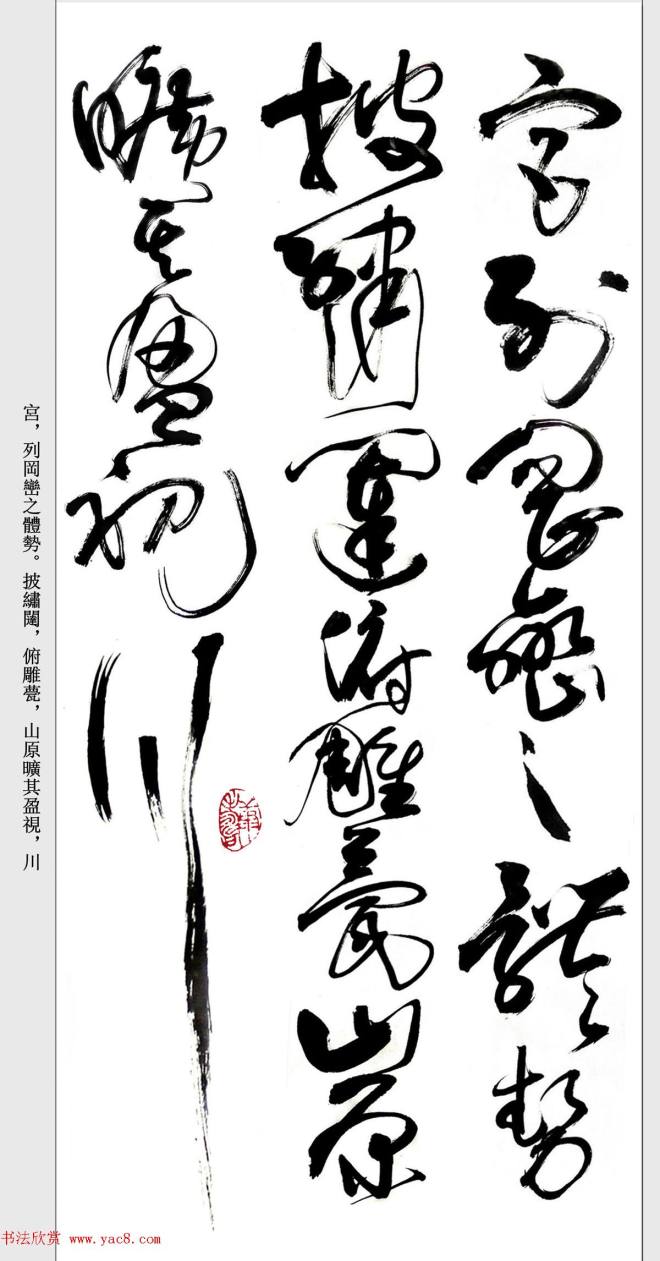 宫列岡巒之體勢
披繡闥俯雕甍山原
曠其盈視川
宮，列岡巒之體勢。披繡闥，俯雕甍，山原曠其盈視，川
书法欣赏 www.yac8.com